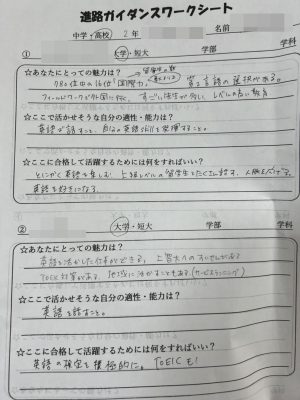 進路ガイダンスワークシート
中学・高校 2年 名前
①
大学・短大 学部 学科
☆あなたにとっての魅力は？
780位中の16位「国際力」 留学生の数 第二言語の選択がある。
フィールドワークが外国に行く、 レベルの高い教育
☆ここで活かせそうな自分の適性・能力は？
英語が話すこと、自分の英語skillを発揮すること。
☆ここに合格して活躍するためには何をすればいい？
とにかく英語を楽しむ 上級レベルの留学生とたくさん話す、人脈を
英語を好きになる
②
大学・短大 学部 学科
☆あなたにとっての魅力は？
英語を活かした仕事ができる、上智大へのすいせんがある
TOEIC対策がある 地域に活かすこともある(サービスラーニング)
☆ここで活かせそうな自分の適性・能力は？
英語を話すこと。
☆ここに合格して活躍するためには何をすればいい？
英語の検定を積極的に。TOEICも!